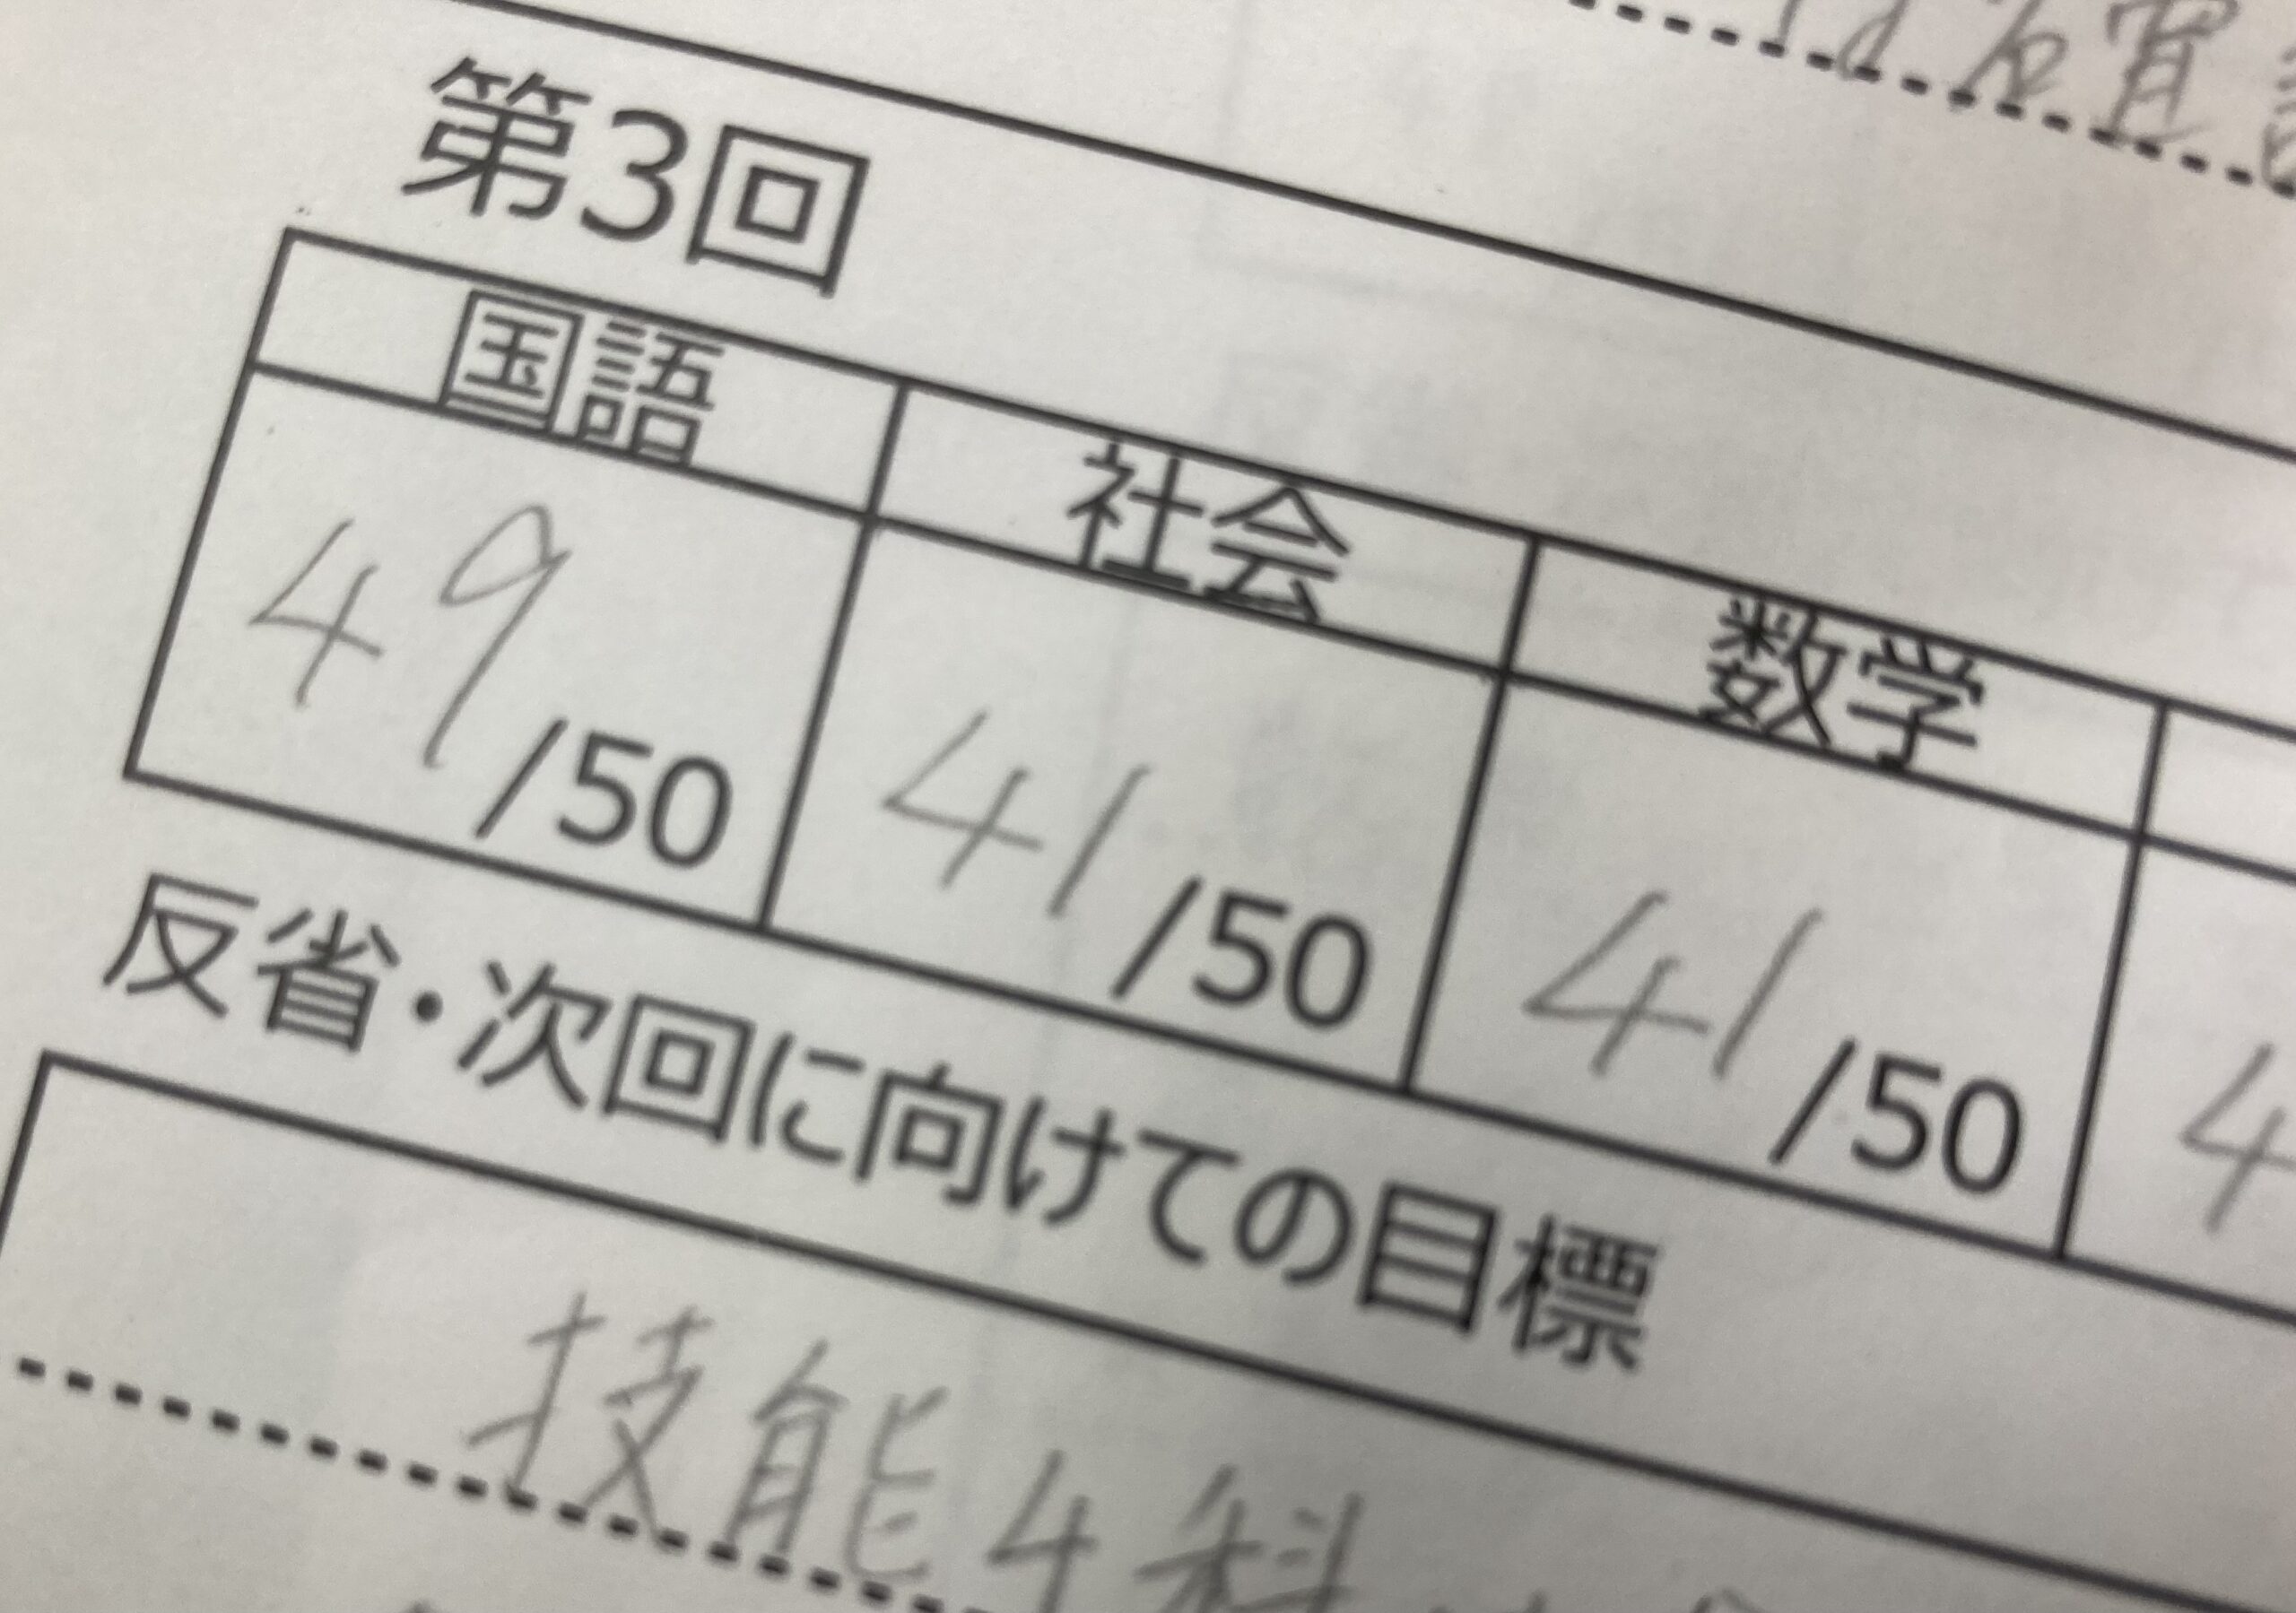 第3回
国語 社会 数学
49/50 41/50 41/50 4
反省・次回に向けての目標
技能4科